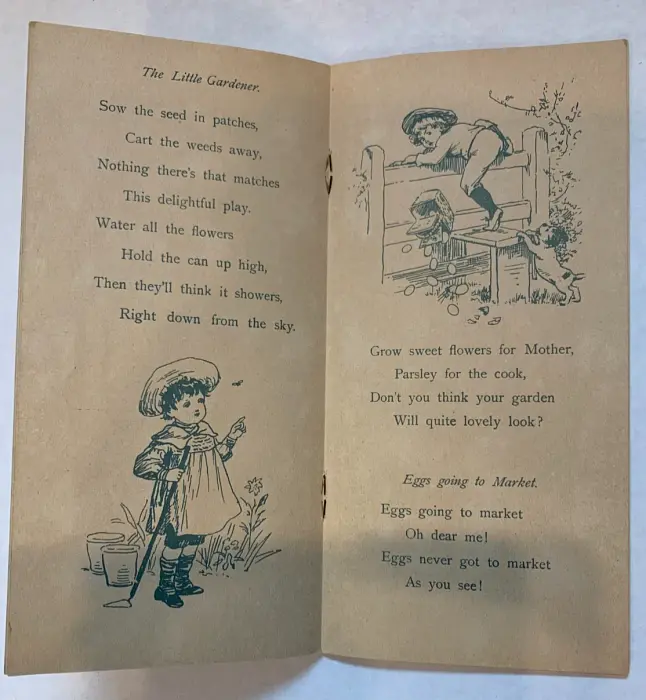 The Little Gardener.
Sow the seed in patches,
Cart the weeds away,
Nothing there's that matches
This delightful play.
Water all the flowers
Hold the can up high,
Then they'll think it showers,
Right down from the sky.
Grow sweet flowers for Mother,
Parsley for the cook,
Don't you think your garden
Will quite lovely look?
Eggs going to Market.
Eggs going to market
Oh dear me!
Eggs never got to market
As you see!